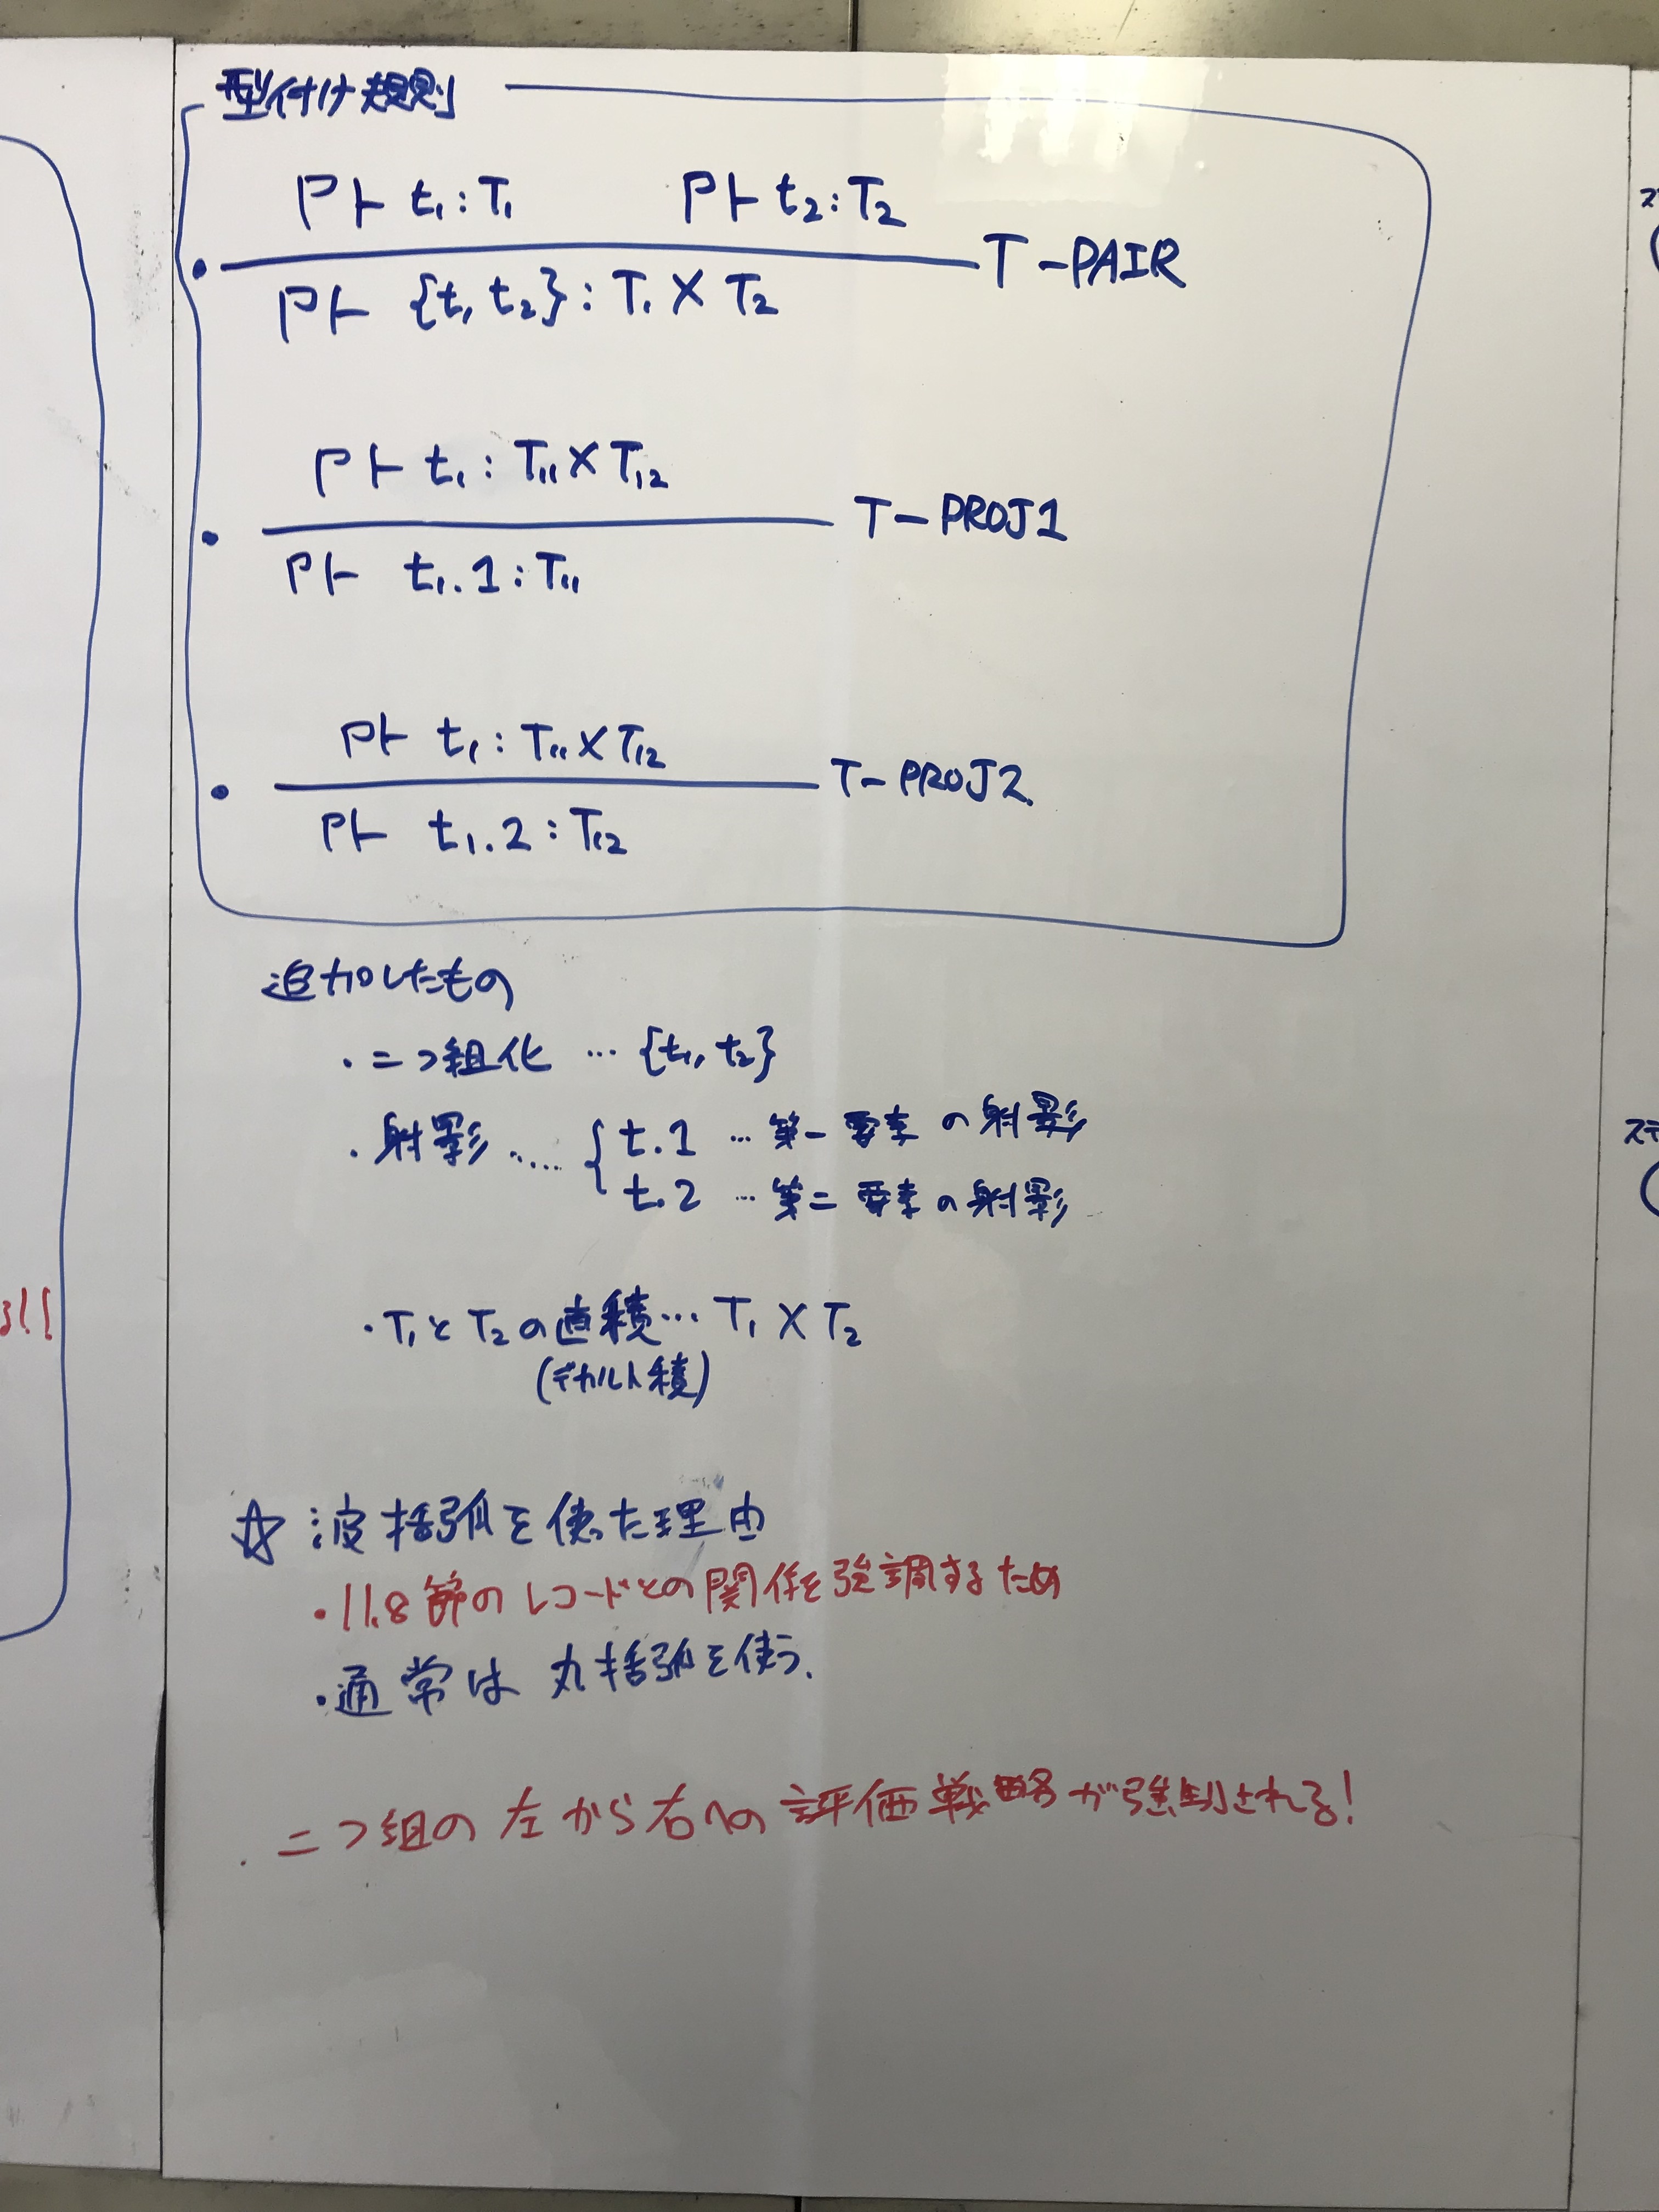 型付け規則
Γ ⊢ t₁ : T₁ Γ ⊢ t₂ : T₂
T-PAIR
Γ ⊢ {t₁, t₂} : T₁ × T₂
Γ ⊢ t₁ : T₁₁ × T₁₂
T-PROJ1
Γ ⊢ t₁.1 : T₁₁
Γ ⊢ t₁ : T₁₁ × T₁₂
T-PROJ2
Γ ⊢ t₁.2 : T₁₂
追加したもの
・二つ組化 … {t₁, t₂}
・射影 …… { t.1 … 第一要素の射影
t.2 … 第二要素の射影
・T₁とT₂の直積… T₁ × T₂
(デカルト積)
☆ 波括弧を使った理由
・11.8節のレコードとの関係を強調するため
・通常は丸括弧を使う.
・二つ組の左から右への評価戦略が強制される!
る!!
ス
ステ